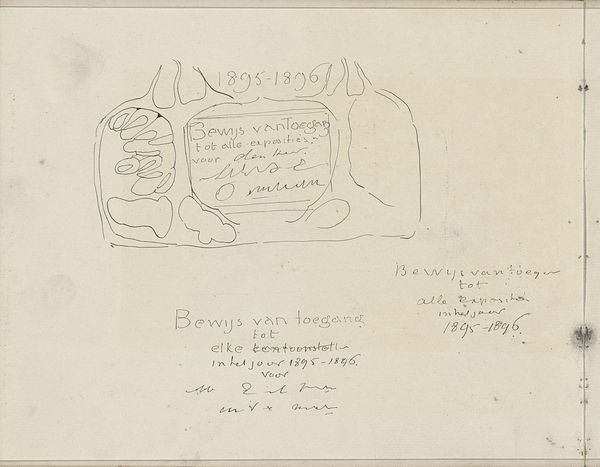 1895-1896
Bewijs van Toegang
tot alle exposities.
voor den Heer.
Bewijs van toegang
tot
alle exposities
in het jaar
1895-1896.
Bewijs van toegang
tot
elke tentoonstell
in het jaar 1895-1896.
voor